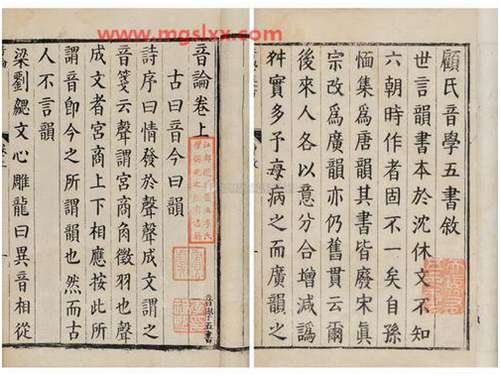 www.mgslxx.com
顧氏音學五書敘
世言韻書本於沈休文不知
六朝時作者固不一矣自孫
愐集爲唐韻其書皆廢宋眞
宗改爲廣韻亦仍舊貫云爾
後來人各以意分合增減譌
舛實多予每病之而廣韻之
音學五書
音論卷上
古曰音今曰韻
詩序曰情發於聲聲成文謂之
音箋云聲謂宮商角徵羽也聲
成文者宮商上下相應按此所
謂音卽今之所謂韻也然而古
人不言韻
梁劉勰文心雕龍曰異音相從